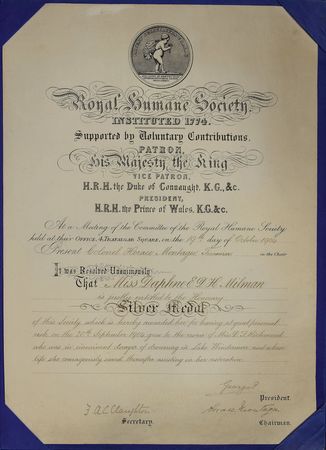 Royal Humane Society.
INSTITUTED 1774.
Supported by Voluntary Contributions.
PATRON,
His Majesty the King
VICE PATRON,
H.R.H. the Duke of Connaught, K.G., &c.
PRESIDENT,
H.R.H. the Prince of Wales, K.G. &c.
At a Meeting of the Committee of the Royal Humane Society
held at their OFFICE, 4, TRAFALGAR SQUARE, on the 19th day of October 1904
Present Colonel Horace Montagu Treasurer in the Chair
It was Resolved Unanimously
That Miss Daphne E D H Milman
is justly entitled to the Honorary
Silver Medal
of this Society which is hereby awarded her for having at great personal
risk on the 20th September 1904 gone to the rescue of
who was in imminent danger of drowning in Lake Windermere and whose
life she courageously saved thereafter assisting in her restoration
George P. President.
F. A. C. Claughton Horace Montagu
Secretary. Chairman.